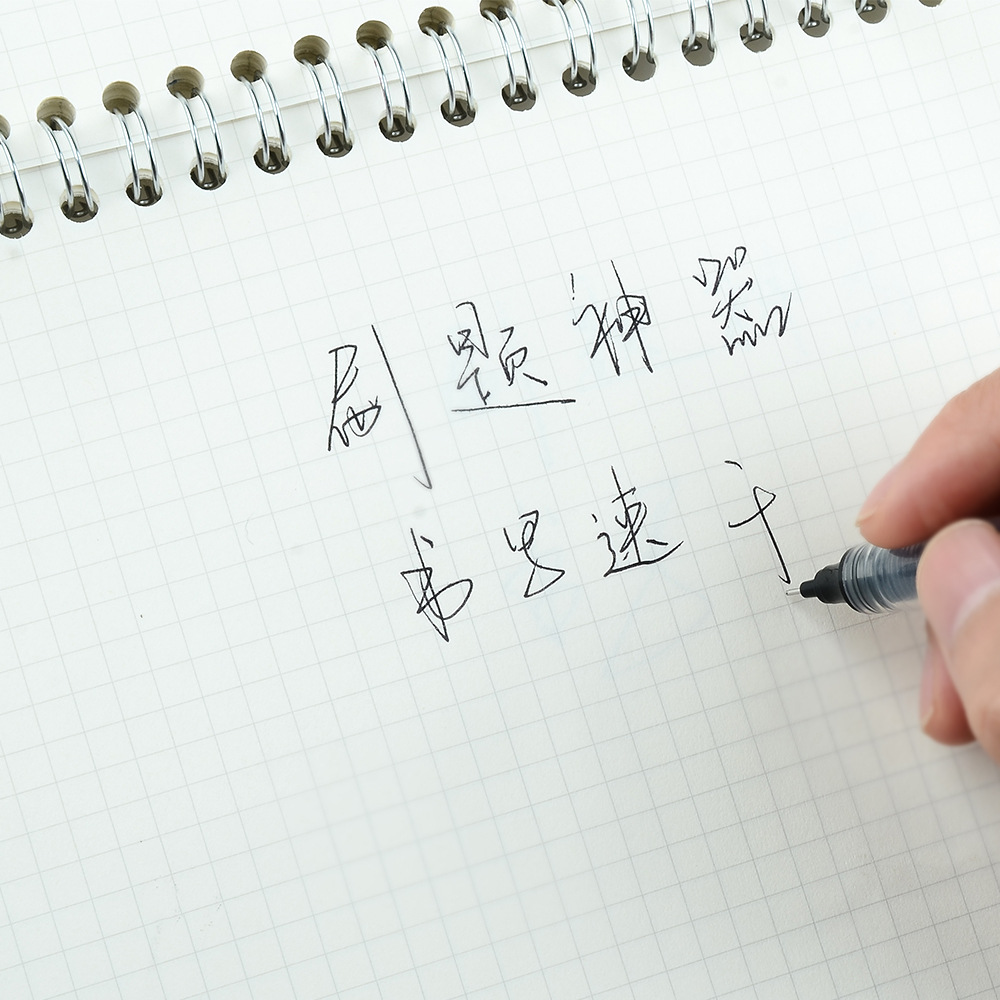 刷题神器
书写速干